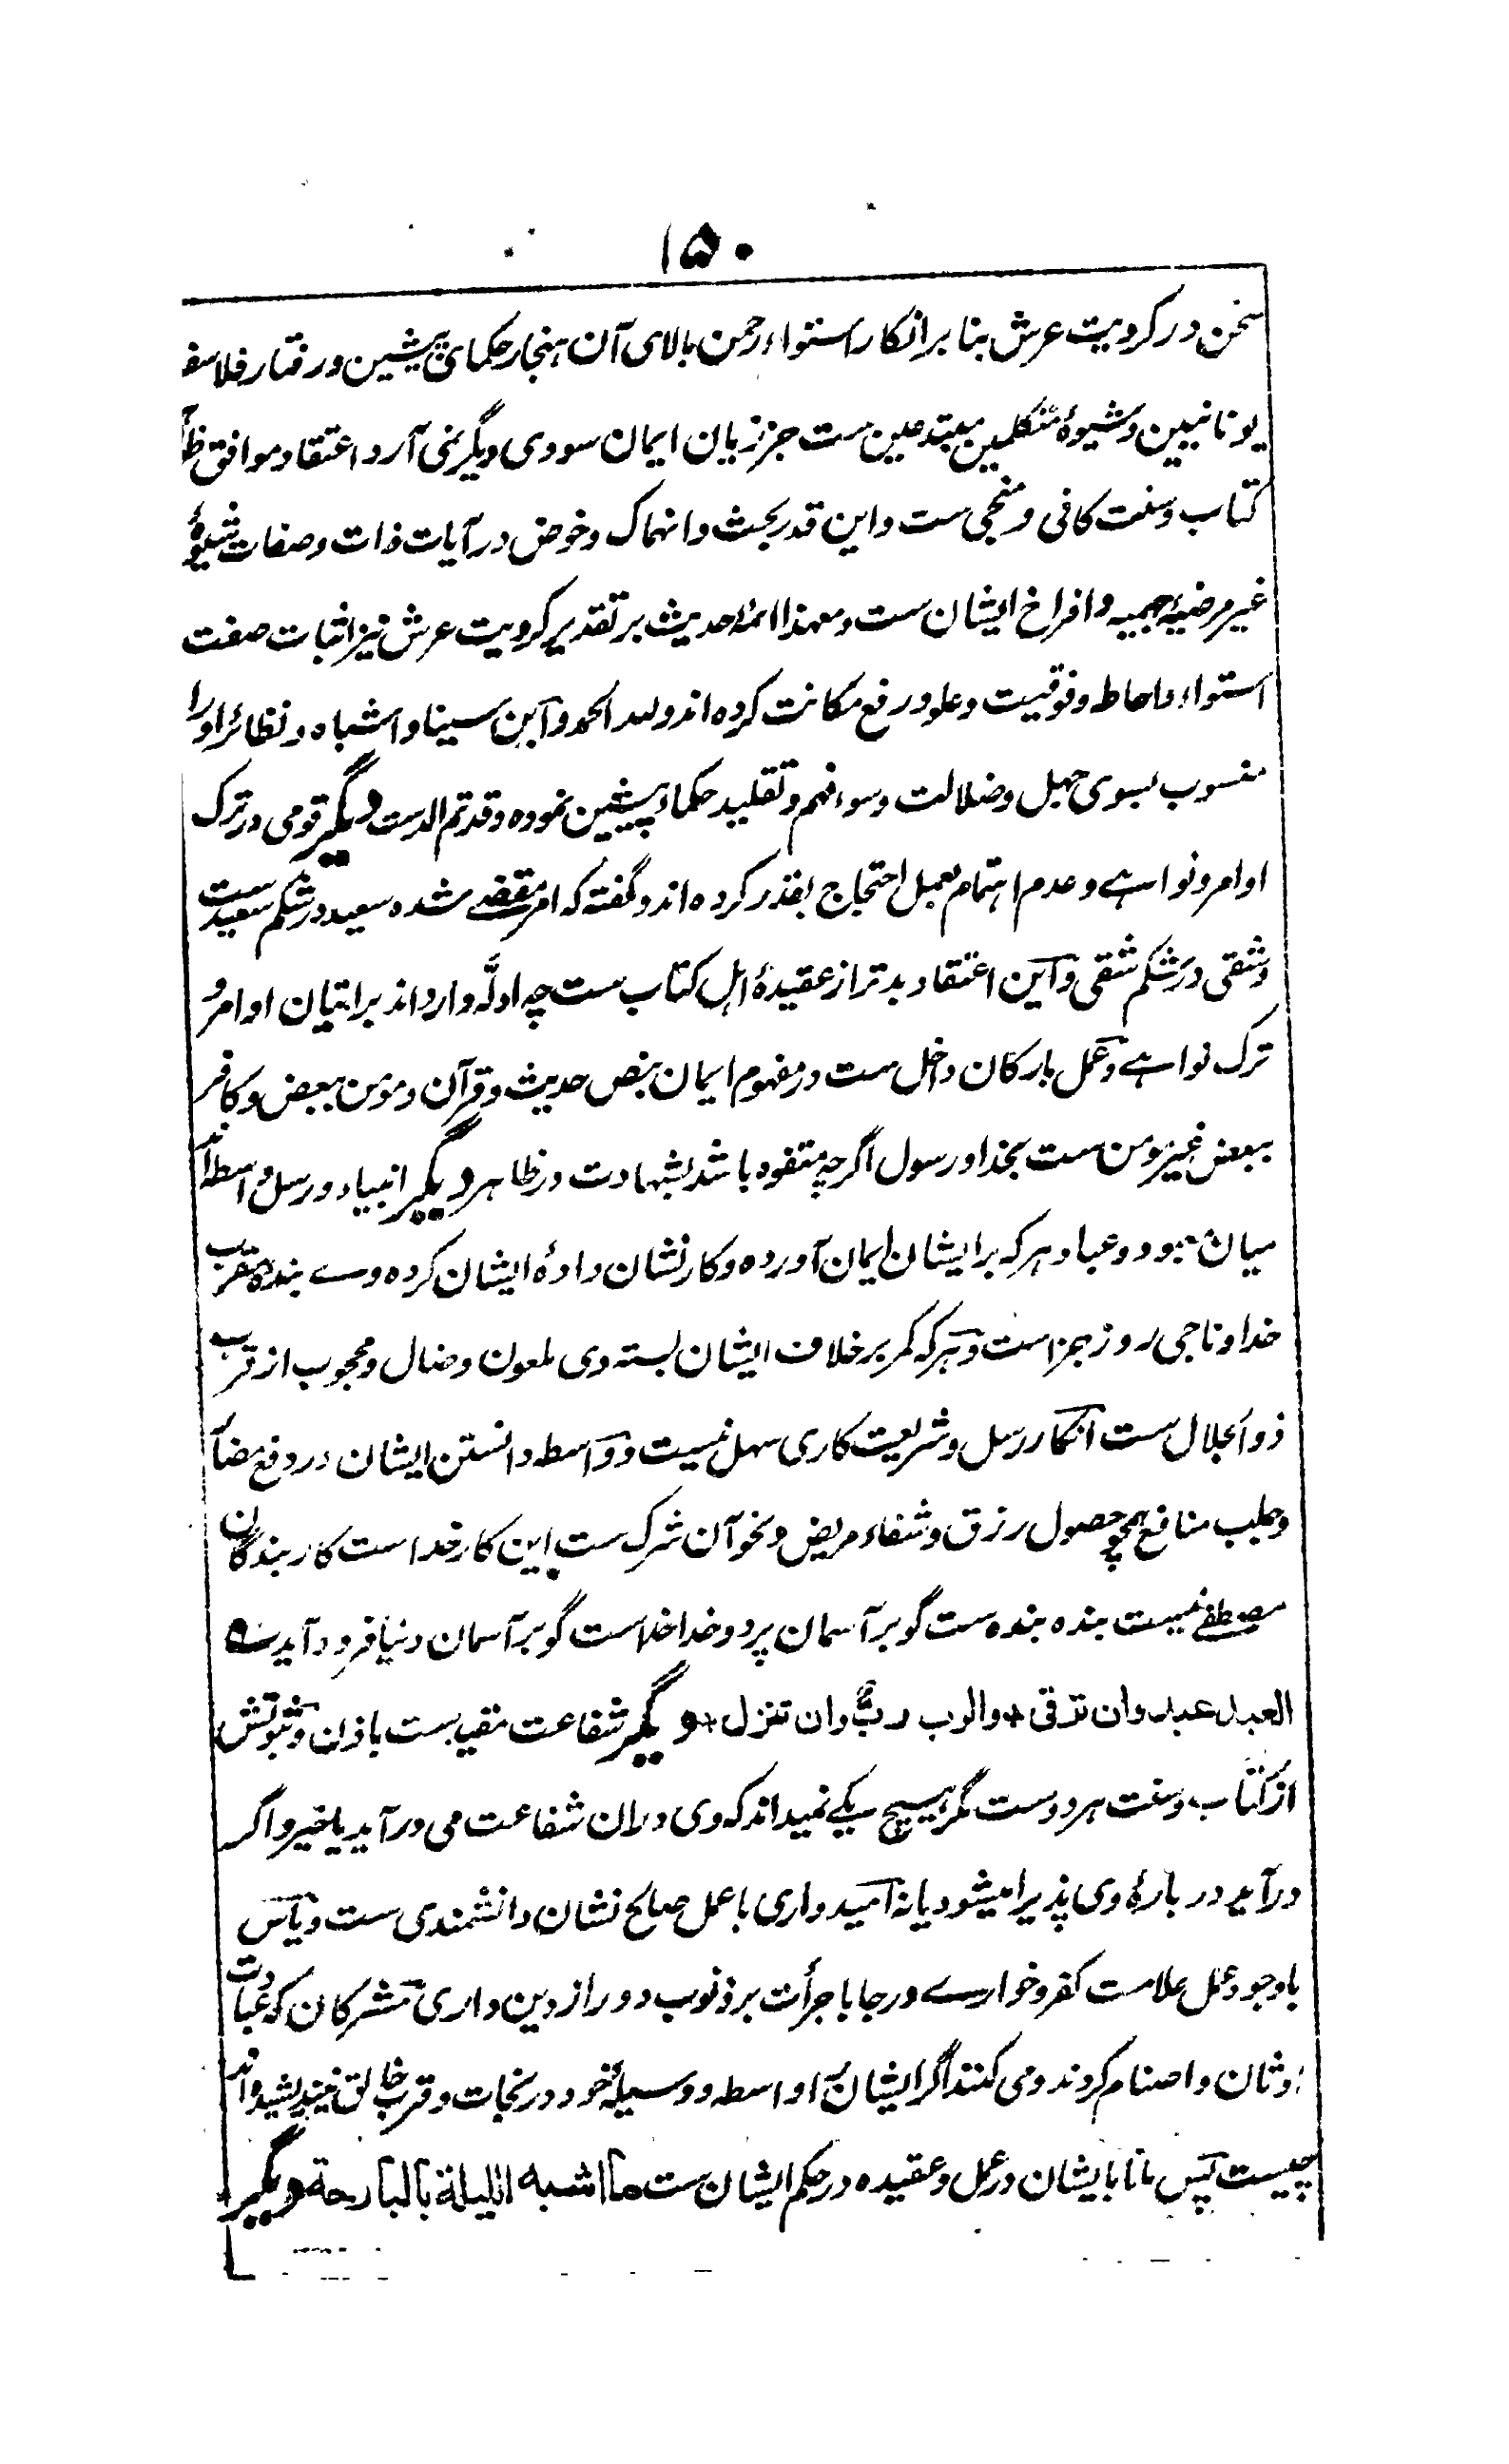 ۱۵۰
سخن در کرویت عرش بنا بر انکار استواء رحمن بالای آن هنجار حکمای پیشین و رفتار فلاسفه
یونانیین و شیوهٔ متکلمین مبتدعین ست جز زیان ایمان سودی دیگر نمی آرد اعتقاد موافق
کتاب و سنت کافی و منجی ست و این قدر بحث و انهماک و خوض در آیات ذات و صفات شیوهٔ
غیر مرضیهٔ جهمیه و افراخ ایشان ست و معهذا ائمهٔ حدیث بر تقدیر کرویت عرش نیز اثبات صفت
استواء و احاطه و فوقیت و علو و رفع مکانت کرده اند ولله الحمد و ابن سینا و اشباه و نظائر او را
منسوب بسوی جهل و ضلالت و سوء فهم و تقلید حکماء پیشین نموده و قد تم الدست دیگر قومی در ترک
اوامر و نواهے و عدم اهتمام بعمل احتجاج بقدر کرده اند و گفته که امر مقضے شده سعید در شکم سعید ست
و شقی در شکم شقی و این اعتقاد بدتر از عقیدهٔ اهل کتاب ست چه ادلّه وارد اند بر اتیان اوامر و
ترک نواهے و عمل بارکان داخل ست در مفهوم ایمان بنص حدیث و قرآن و مومن ببعض و کافر
ببعض غیر مومن ست بخدا و رسول اگرچه متفوه باشد بشهادت در ظاهر دیگر انبیاء و رسل واسطه اند
میان معبود و عباد هر که بر ایشان ایمان آورده و کار نشان دادهٔ ایشان کرده وے بندهٔ مقرب
خدا و ناجی روز جزاست و هر که کمر بر خلاف ایشان بسته وی ملعون و ضال و محجوب از قرب
ذو الجلال ست انکار رسل و شریعت کاری سهل نیست و واسطه دانستن ایشان در دفع مضار
و جلب منافع همچو حصول رزق و شفاء مریض و نحو آن شرک ست این کار خداست کار بندگان
مصطفے نیست بنده بنده ست گو بر آسمان پرد و خدا خداست گو بر آسمان دنیا فرود آید ه
العبد عبد وان ترقی + والرب ربٌّ وان تنزل + دیگر شفاعت مقید ست باذن و ثبوتش
از کتاب و سنت هر دو ست مگر هیچ یکے نمیداند که وی دران شفاعت می درآید یا خیر و اگر
درآید در بارهٔ وی پذیرا میشود یا نه امیدواری با عمل صالح نشان دانشمندی ست و یاس
با وجود عمل علامت کفر و خوارے و رجا با جرأت بر ذنوب دور از دین داری مشرکان که عبادت
اوثان و اصنام کردند و می کنند اگر ایشان را واسطه و وسیلهٔ خود در نجات و قرب خالق نیندیشیده اند
چیست پس مانا بایشان در عمل و عقیده در حکم ایشان ست ما اشبه اللیلة بالبارحة دیگر